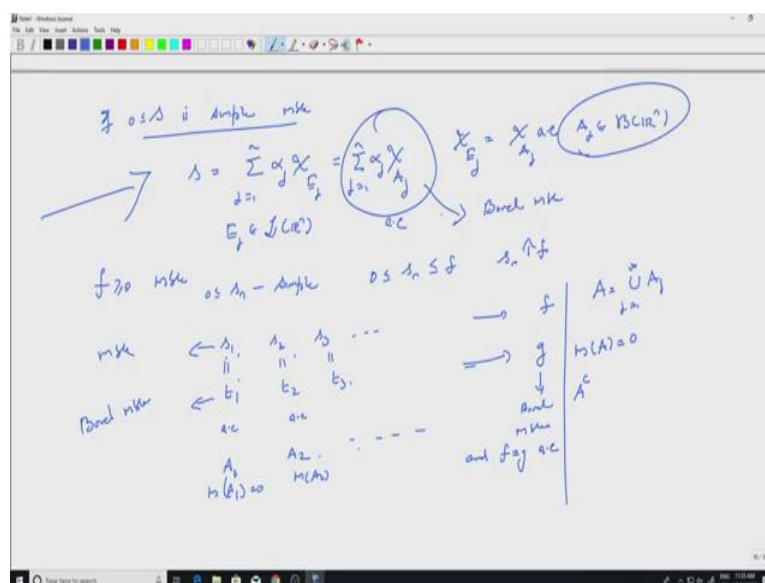 Note1 - Windows Journal
File Edit View Insert Actions Tools Help
If 0 ≤ s is simple mble
s = ∑_{j=1}^{n} α_j χ_{E_j} = ∑_{j=1}^{n} α_j χ_{A_j} a.e χ_{E_j} = χ_{A_j} a.e A_j ∈ B(ℝⁿ)
E_j ∈ L(ℝⁿ) → Borel mble
f ≥ 0 mble 0 ≤ s_n - simple 0 ≤ s_n ≤ f s_n ↑ f
mble ← s_1, s_2, s_3 ... → f
|| || ||
Borel mble ← t_1, t_2, t_3, → g
a.e a.e ↓
Borel
mble
and f = g a.e
A_1 A_2 . . - - -
m(A_1) = 0 m(A_2)
A = ∪_{j=1}^{∞} A_j
m(A) = 0
A^c
Type here to search
ENG 11:03 AM